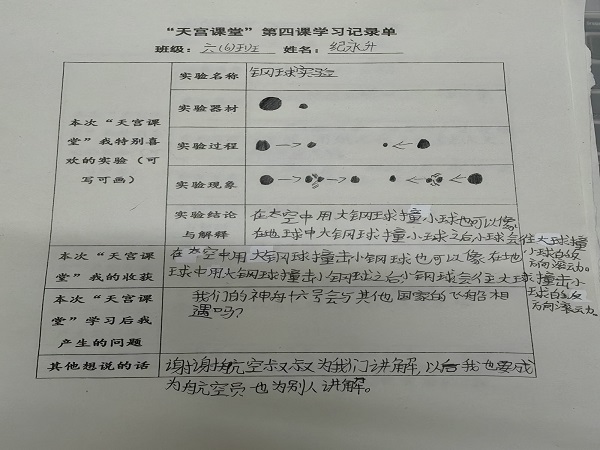 “天宫课堂”第四课学习记录单
班级：六(6)班 姓名：纪永升
本次“天宫课
堂”我特别喜
欢的实验（可
写可画）
实验名称 钢球实验
实验器材
实验过程
实验现象
实验结论
与解释
在太空中用大钢球撞小球也可以像
在地球中大钢球撞小球之后小球会往大球撞
小球的反
方向滚动。
本次“天宫课
堂”我的收获
在太空中用大钢球撞击小钢球也可以像在地
球中用大钢球撞击小钢球之后小钢球会往大球撞击小
球的反
方向滚动
本次“天宫课
堂”学习后我
产生的问题
我们的神舟十六号会与其他国家的飞船相
遇吗？
其他想说的话
谢谢航空叔叔为我们讲解，以后我也要成
为航空员也为别人讲解。